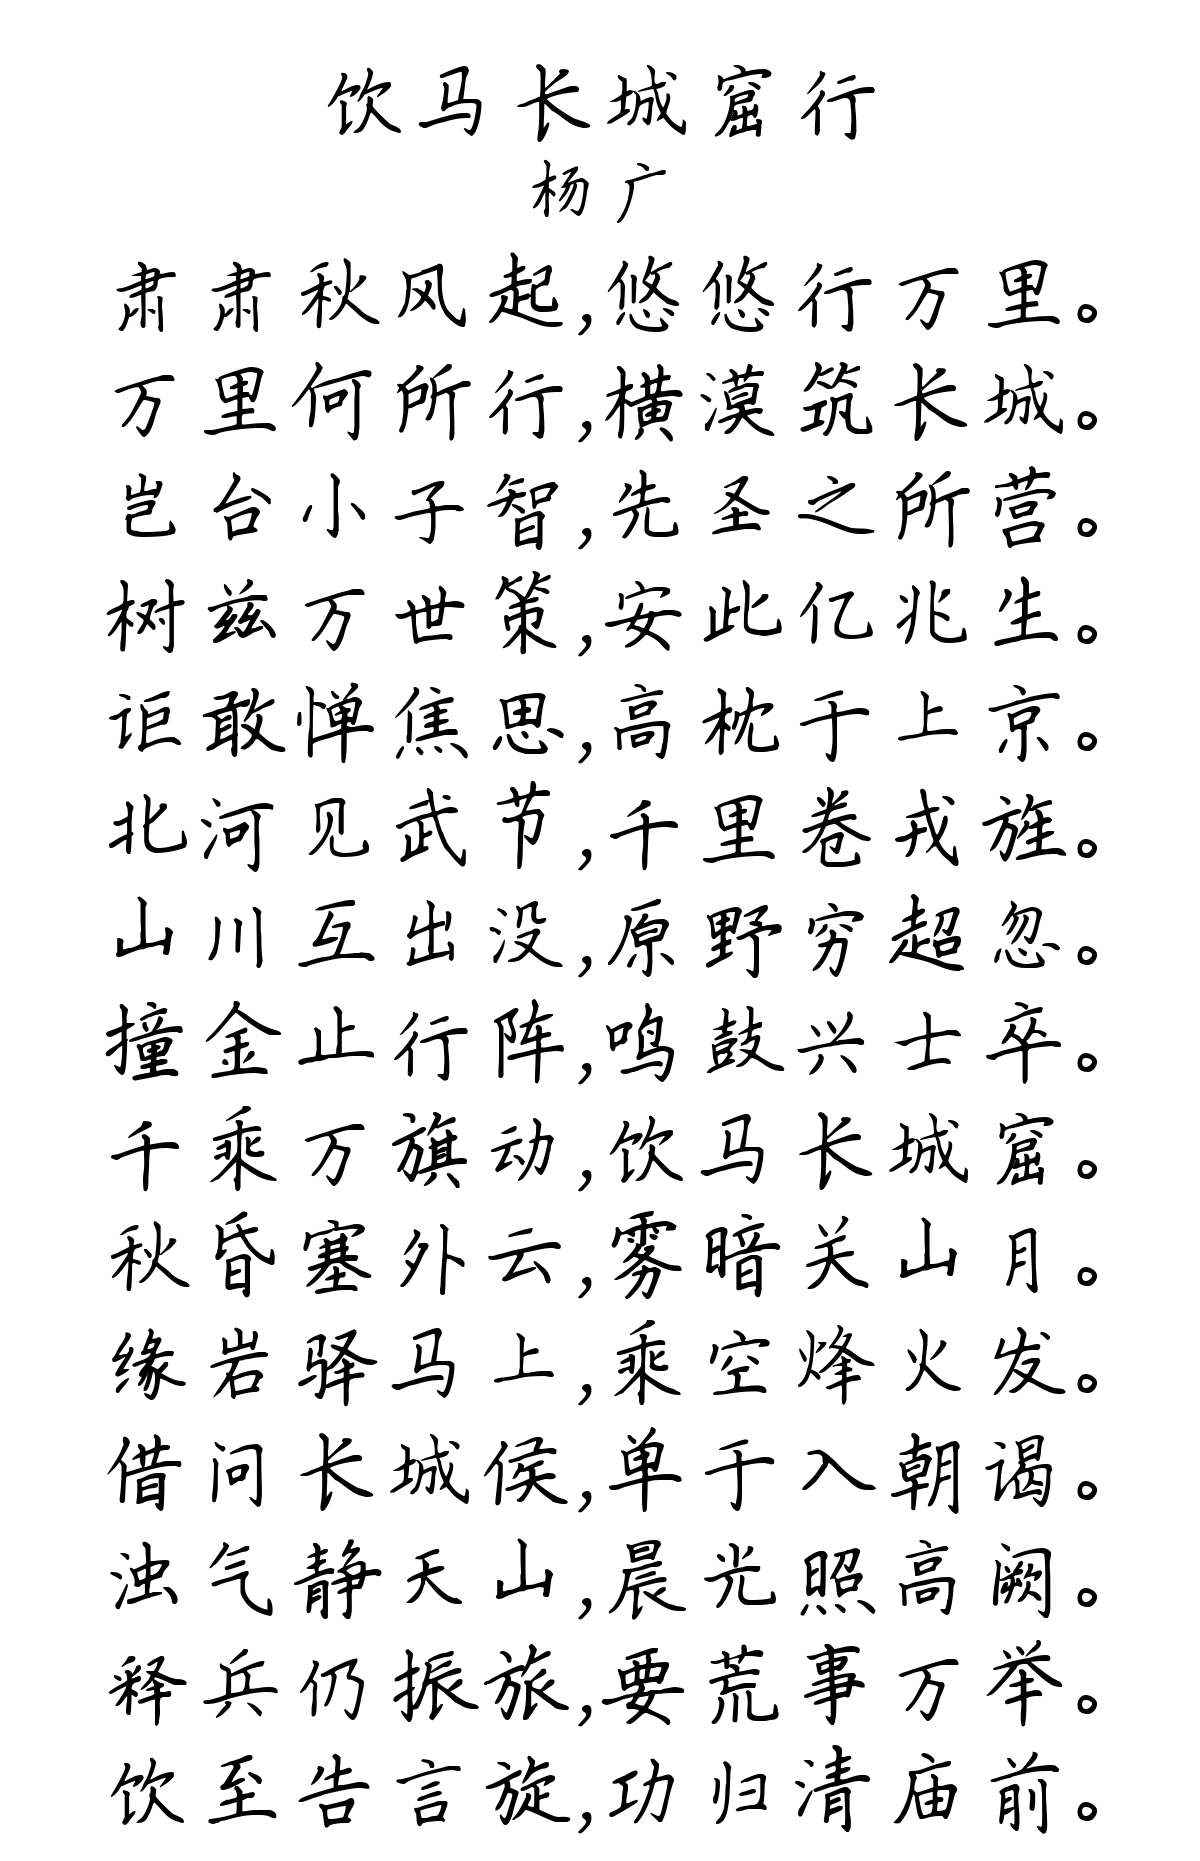 饮马长城窟行
杨广
肃肃秋风起,悠悠行万里。
万里何所行,横漠筑长城。
岂台小子智,先圣之所营。
树兹万世策,安此亿兆生。
讵敢惮焦思,高枕于上京。
北河见武节,千里卷戎旌。
山川互出没,原野穷超忽。
撞金止行阵,鸣鼓兴士卒。
千乘万旗动,饮马长城窟。
秋昏塞外云,雾暗关山月。
缘岩驿马上,乘空烽火发。
借问长城侯,单于入朝谒。
浊气静天山,晨光照高阙。
释兵仍振旅,要荒事万举。
饮至告言旋,功归清庙前。